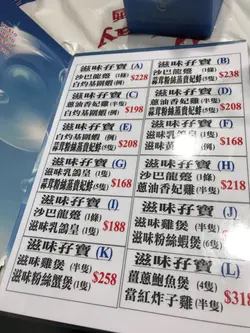 滋味孖寶 (A)
沙巴龍躉 (1條) $228
白灼基圍蝦 (例)
滋味孖寶 (B)
沙巴龍躉 (1條) $238
蒜茸粉絲蒸貴妃蚌(5隻)
滋味孖寶 (C)
蔥油香妃雞 (半隻) $198
白灼基圍蝦 (例)
滋味孖寶 (D)
蔥油香妃雞(半隻) $208
蒜茸粉絲蒸貴妃蚌(5隻)
滋味孖寶 (E)
白灼基圍蝦 (例) $208
蒜茸粉絲蒸貴妃蚌(5隻)
滋味孖寶 (F)
滋味乳鴿皇 (1隻) $168
滋味 (例)
滋味孖寶 (G)
滋味乳鴿皇(1隻) $168
蒜茸粉絲蒸貴妃蚌(5隻)
滋味孖寶 (H)
沙巴龍躉 (1條) $218
蔥油香妃雞 (半隻)
滋味孖寶 (I)
沙巴龍躉 (1條) $188
滋味乳鴿皇 (1隻)
滋味孖寶 (J)
滋味雞煲 (半隻)
滋味粉絲蟹煲 (6隻)
滋味孖寶 (K)
滋味雞煲 (半隻) $258
滋味粉絲蟹煲 (1隻)
滋味孖寶 (L)
薑蔥鮑魚煲 (4隻) $318
當紅炸子雞 (半隻)